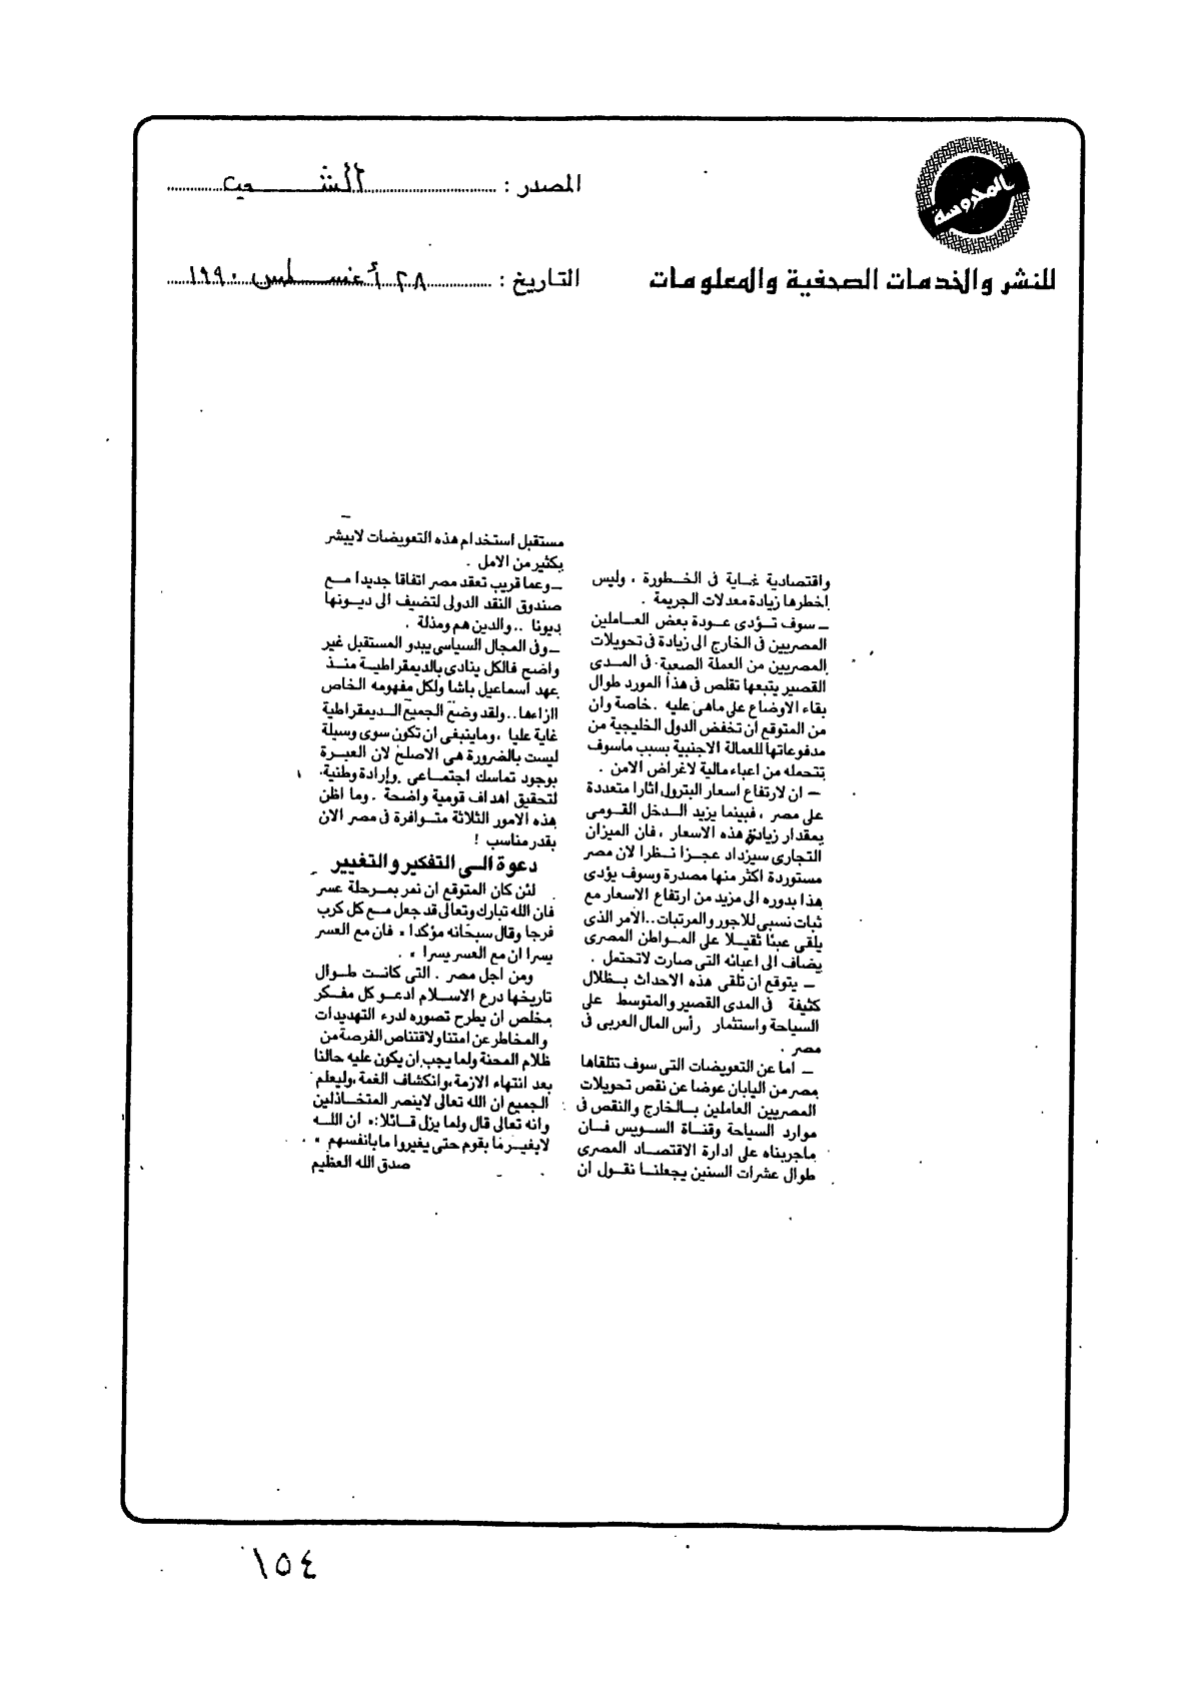 المحروسة
للنشر والخدمات الصحفية والمعلومات
المصدر : الشعب
التاريخ : ٢٨ أغسطس ١٩٩٠
واقتصادية غاية فى الخطورة ، وليس
اخطرها زيادة معدلات الجريمة .
ـ سوف تؤدى عودة بعض العاملين
المصريين فى الخارج الى زيادة فى تحويلات
المصريين من العملة الصعبة فى المدى
القصير يتبعها تقلص فى هذا المورد طوال
بقاء الاوضاع على ماهى عليه . خاصة وان
من المتوقع ان تخفض الدول الخليجية من
مدفوعاتها للعمالة الاجنبية بسبب ماسوف
تتحمله من اعباء مالية لاغراض الامن .
ـ ان لارتفاع اسعار البترول اثارا متعددة
على مصر ، فبينما يزيد الدخل القومى
بمقدار زيادة هذه الاسعار ، فان الميزان
التجارى سيزداد عجزا نظرا لان مصر
مستوردة اكثر منها مصدرة وسوف يؤدى
هذا بدوره الى مزيد من ارتفاع الاسعار مع
ثبات نسبى للاجور والمرتبات .. الأمر الذى
يلقى عبئا ثقيلا على المواطن المصرى
يضاف الى اعبائه التى صارت لاتحتمل .
ـ يتوقع ان تلقى هذه الاحداث بظلال
كثيفة فى المدى القصير والمتوسط على
السياحة واستثمار رأس المال العربى فى
مصر .
ـ اما عن التعويضات التى سوف تتلقاها
مصر من اليابان عوضا عن نقص تحويلات
المصريين العاملين بالخارج والنقص فى
موارد السياحة وقناة السويس فان
ماجربناه على ادارة الاقتصاد المصرى
طوال عشرات السنين يجعلنا نقول ان
مستقبل استخدام هذه التعويضات لايبشر
بكثير من الامل .
ـ وعما قريب تعقد مصر اتفاقا جديدا مع
صندوق النقد الدولى لتضيف الى ديونها
ديونا .. والدين هم ومذلة .
ـ وفى المجال السياسى يبدو المستقبل غير
واضح فالكل ينادى بالديمقراطية منذ
عهد اسماعيل باشا ولكل مفهومه الخاص
ازاءها .. ولقد وضع الجميع الديمقراطية
غاية عليا ، وماينبغى ان تكون سوى وسيلة
ليست بالضرورة هى الاصلح لان العبرة
بوجود تماسك اجتماعى وإرادة وطنية
لتحقيق اهداف قومية واضحة . وما اظن
هذه الامور الثلاثة متوافرة فى مصر الان
بقدر مناسب !
دعوة الى التفكير والتغيير
لئن كان المتوقع ان نمر بمرحلة عسر
فان الله تبارك وتعالى قد جعل مع كل كرب
فرجا وقال سبحانه مؤكدا « فان مع العسر
يسرا ان مع العسر يسرا » .
ومن اجل مصر . التى كانت طوال
تاريخها درع الاسلام ادعو كل مفكر
مخلص ان يطرح تصوره لدرء التهديدات
والمخاطر عن امتنا ولاقتناص الفرصة من
ظلام المحنة ولما يجب ان يكون عليه حالنا
بعد انتهاء الازمة ، وانكشاف الغمة ، وليعلم
الجميع ان الله تعالى لاينصر المتخاذلين
وانه تعالى قال ولما يزل قائلا : « ان الله
لايغير ما بقوم حتى يغيروا ما بانفسهم »
صدق الله العظيم
١٥٤